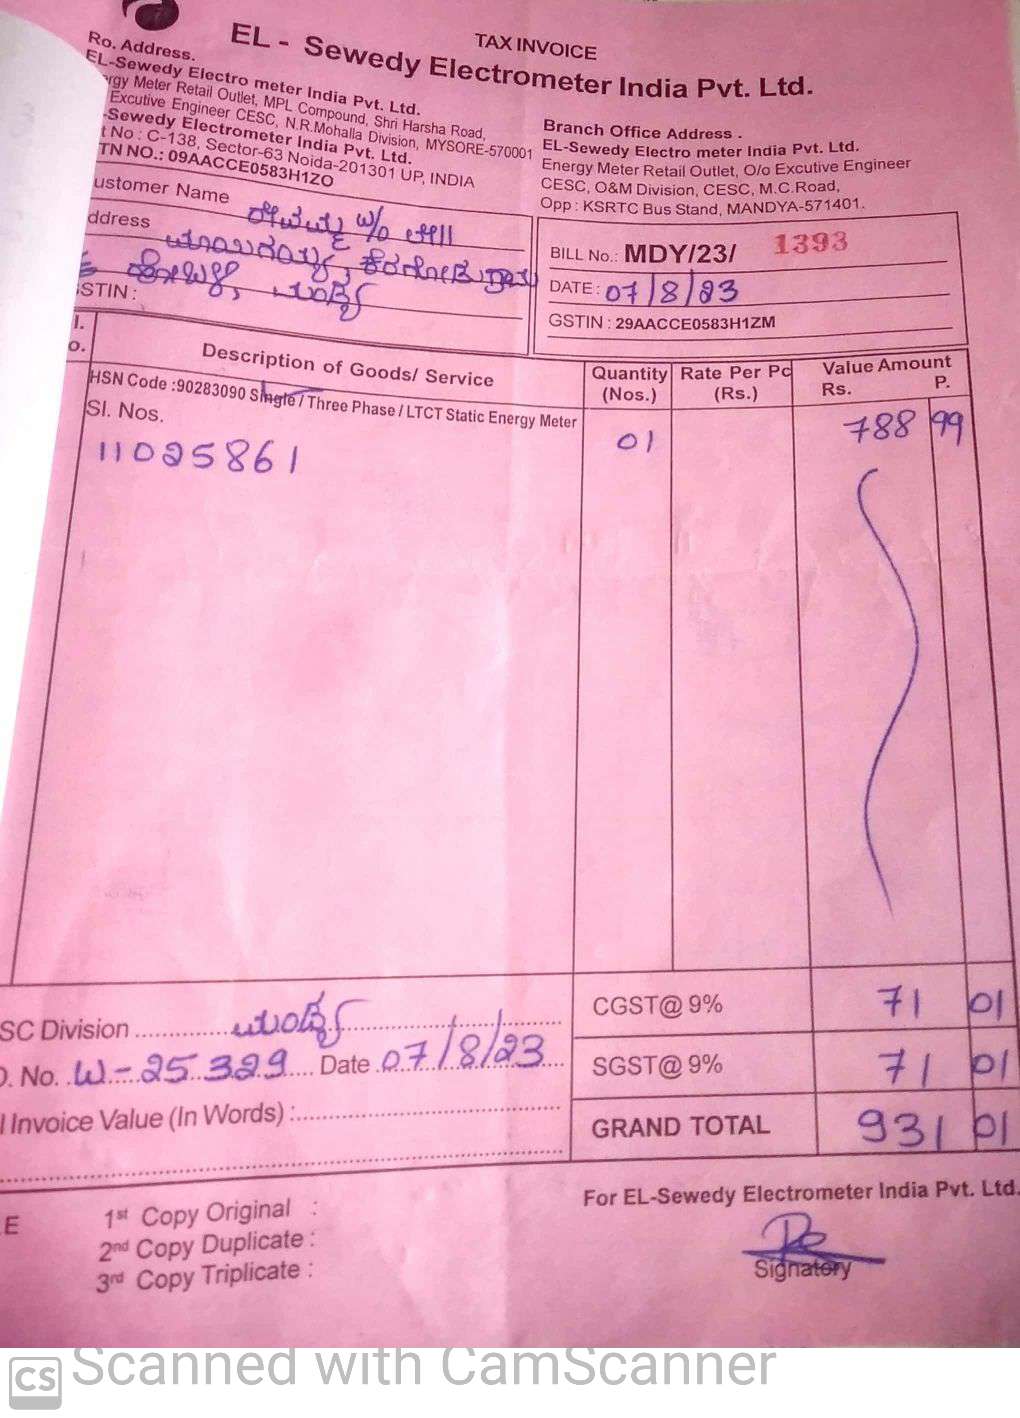 TAX INVOICE
EL - Sewedy Electrometer India Pvt. Ltd.
Ro. Address.
EL-Sewedy Electro meter India Pvt. Ltd.
rgy Meter Retail Outlet, MPL Compound, Shri Harsha Road,
Excutive Engineer CESC, N.R.Mohalla Division, MYSORE-570001
-Sewedy Electrometer India Pvt. Ltd.
t No : C-138, Sector-63 Noida-201301 UP, INDIA
TN NO.: 09AACCE0583H1ZO
Branch Office Address .
EL-Sewedy Electro meter India Pvt. Ltd.
Energy Meter Retail Outlet, O/o Excutive Engineer
CESC, O&M Division, CESC, M.C.Road,
Opp : KSRTC Bus Stand, MANDYA-571401.
ustomer Name W/o
ddress
ಮಂಡ್ಯ
STIN :
BILL No.: MDY/23/ 1393
DATE : 07/8/23
GSTIN : 29AACCE0583H1ZM
l. o. Description of Goods/ Service Quantity (Nos.) Rate Per Pc (Rs.) Value Amount Rs. P.
HSN Code :90283090 Single / Three Phase / LTCT Static Energy Meter
Sl. Nos. 01 788 99
11025861
SC Division ಮಂಡ್ಯ CGST@ 9% 71 01
O. No. W-25329 Date 07/8/23 SGST@ 9% 71 01
l Invoice Value (In Words) : GRAND TOTAL 931 01
For EL-Sewedy Electrometer India Pvt. Ltd.
E 1st Copy Original :
2nd Copy Duplicate :
3rd Copy Triplicate :
Signatory
CS Scanned with CamScanner